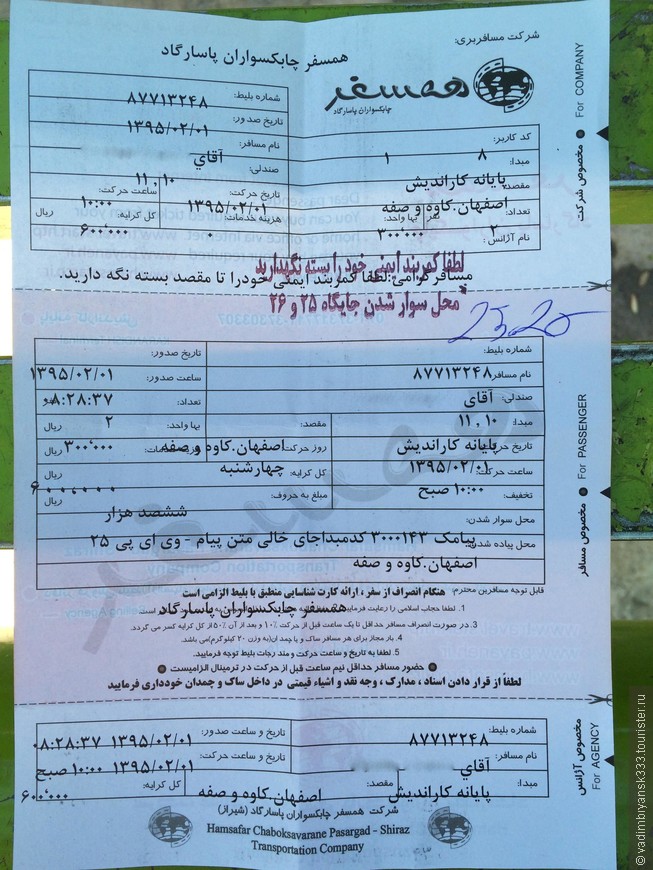 شرکت مسافربری:
همسفر چابکسواران پاسارگاد
همسفر
چابکسواران پاسارگاد
For COMPANY
مخصوص شرکت
شماره بلیط:
۸۷۷۱۳۲۴۸
تاریخ صدور:
۱۳۹۵/۰۲/۰۱
نام مسافر:
آقاي
صندلی:
۱۱ , ۱۰
کد کاربر:
۸
۱
مبدا:
پایانه کاراندیش
مقصد:
اصفهان.کاوه و صفه
تاریخ حرکت:
۱۳۹۵/۰۲/۰۱
ساعت حرکت:
۱۰:۰۰
تعداد:
نفر
۲
بها واحد:
۳۰۰٬۰۰۰
هزینه خدمات:
۰
کل کرایه:
ریال
۶۰۰٬۰۰۰
نام آژانس:
لطفا کمربند ایمنی خود را بسته نگهدارید
مسافر گرامی: لطفا کمربند ایمنی خودرا تا مقصد بسته نگه دارید.
محل سوار شدن جایگاه ۲۵ و ۲۶
For PASSENGER
مخصوص مسافر
شماره بلیط:
تاریخ صدور:
نام مسافر:
۸۷۷۱۳۲۴۸
ساعت صدور:
۱۳۹۵/۰۲/۰۱
صندلی:
آقای
تعداد:
۰۸:۲۸:۳۷
مبدا:
۱۱ , ۱۰
مقصد:
بها واحد:
۲
ریال
تاریخ حرکت:
پایانه کاراندیش
روز حرکت:
اصفهان.کاوه و صفه
۳۰۰٬۰۰۰
ریال
ساعت حرکت:
۱۳۹۵/۰۲/۰۱
کل کرایه:
چهارشنبه
ریال
تخفیف:
۱۰:۰۰ صبح
مبلغ به حروف:
۶۰۰,۰۰۰
ریال
محل سوار شدن:
ششصد هزار
محل پیاده شدن:
پیامک ۳۰۰۰۱۴۳ کدمبداجای خالی متن پیام - وی ای پی ۲۵
اصفهان.کاوه و صفه
قابل توجه مسافرین محترم:
هنگام انصراف از سفر ، ارائه کارت شناسایی منطبق با بلیط الزامی است
1. لطفا حجاب اسلامی را رعایت فرمایید
همسفر چابکسواران پاسارگاد
است
3. در صورت انصراف مسافر حداقل تا یک ساعت قبل از حرکت ۱۰٪ و بعد از آن ۵۰٪ از کل کرایه کسر می گردد.
4. بار مجاز برای هر مسافر ساک و یا چمدان(به وزن ۲۰ کیلوگرم)می باشد.
5. لطفا به تاریخ و ساعت حرکت و مندرجات بلیط توجه فرمایید.
حضور مسافر حداقل نیم ساعت قبل از حرکت در ترمینال الزامیست
لطفاً از قرار دادن اسناد ، مدارک ، وجه نقد و اشیاء قیمتی در داخل ساک و چمدان خودداری فرمایید
For AGENCY
مخصوص آژانس
شماره بلیط:
۸۷۷۱۳۲۴۸
تاریخ و ساعت صدور:
۱۳۹۵/۰۲/۰۱ ۰۸:۲۸:۳۷
نام مسافر:
آقای
تاریخ و ساعت حرکت:
۱۳۹۵/۰۲/۰۱ ۱۰:۰۰ صبح
مبدا:
پایانه کاراندیش
مقصد:
اصفهان.کاوه و صفه
کل کرایه:
۶۰۰٬۰۰۰
شرکت همسفر چابکسواران پاسارگاد (شیراز)
Hamsafar Chaboksavarane Pasargad - Shiraz
Transportation Company
© vadimbryansk333.tourister.ru